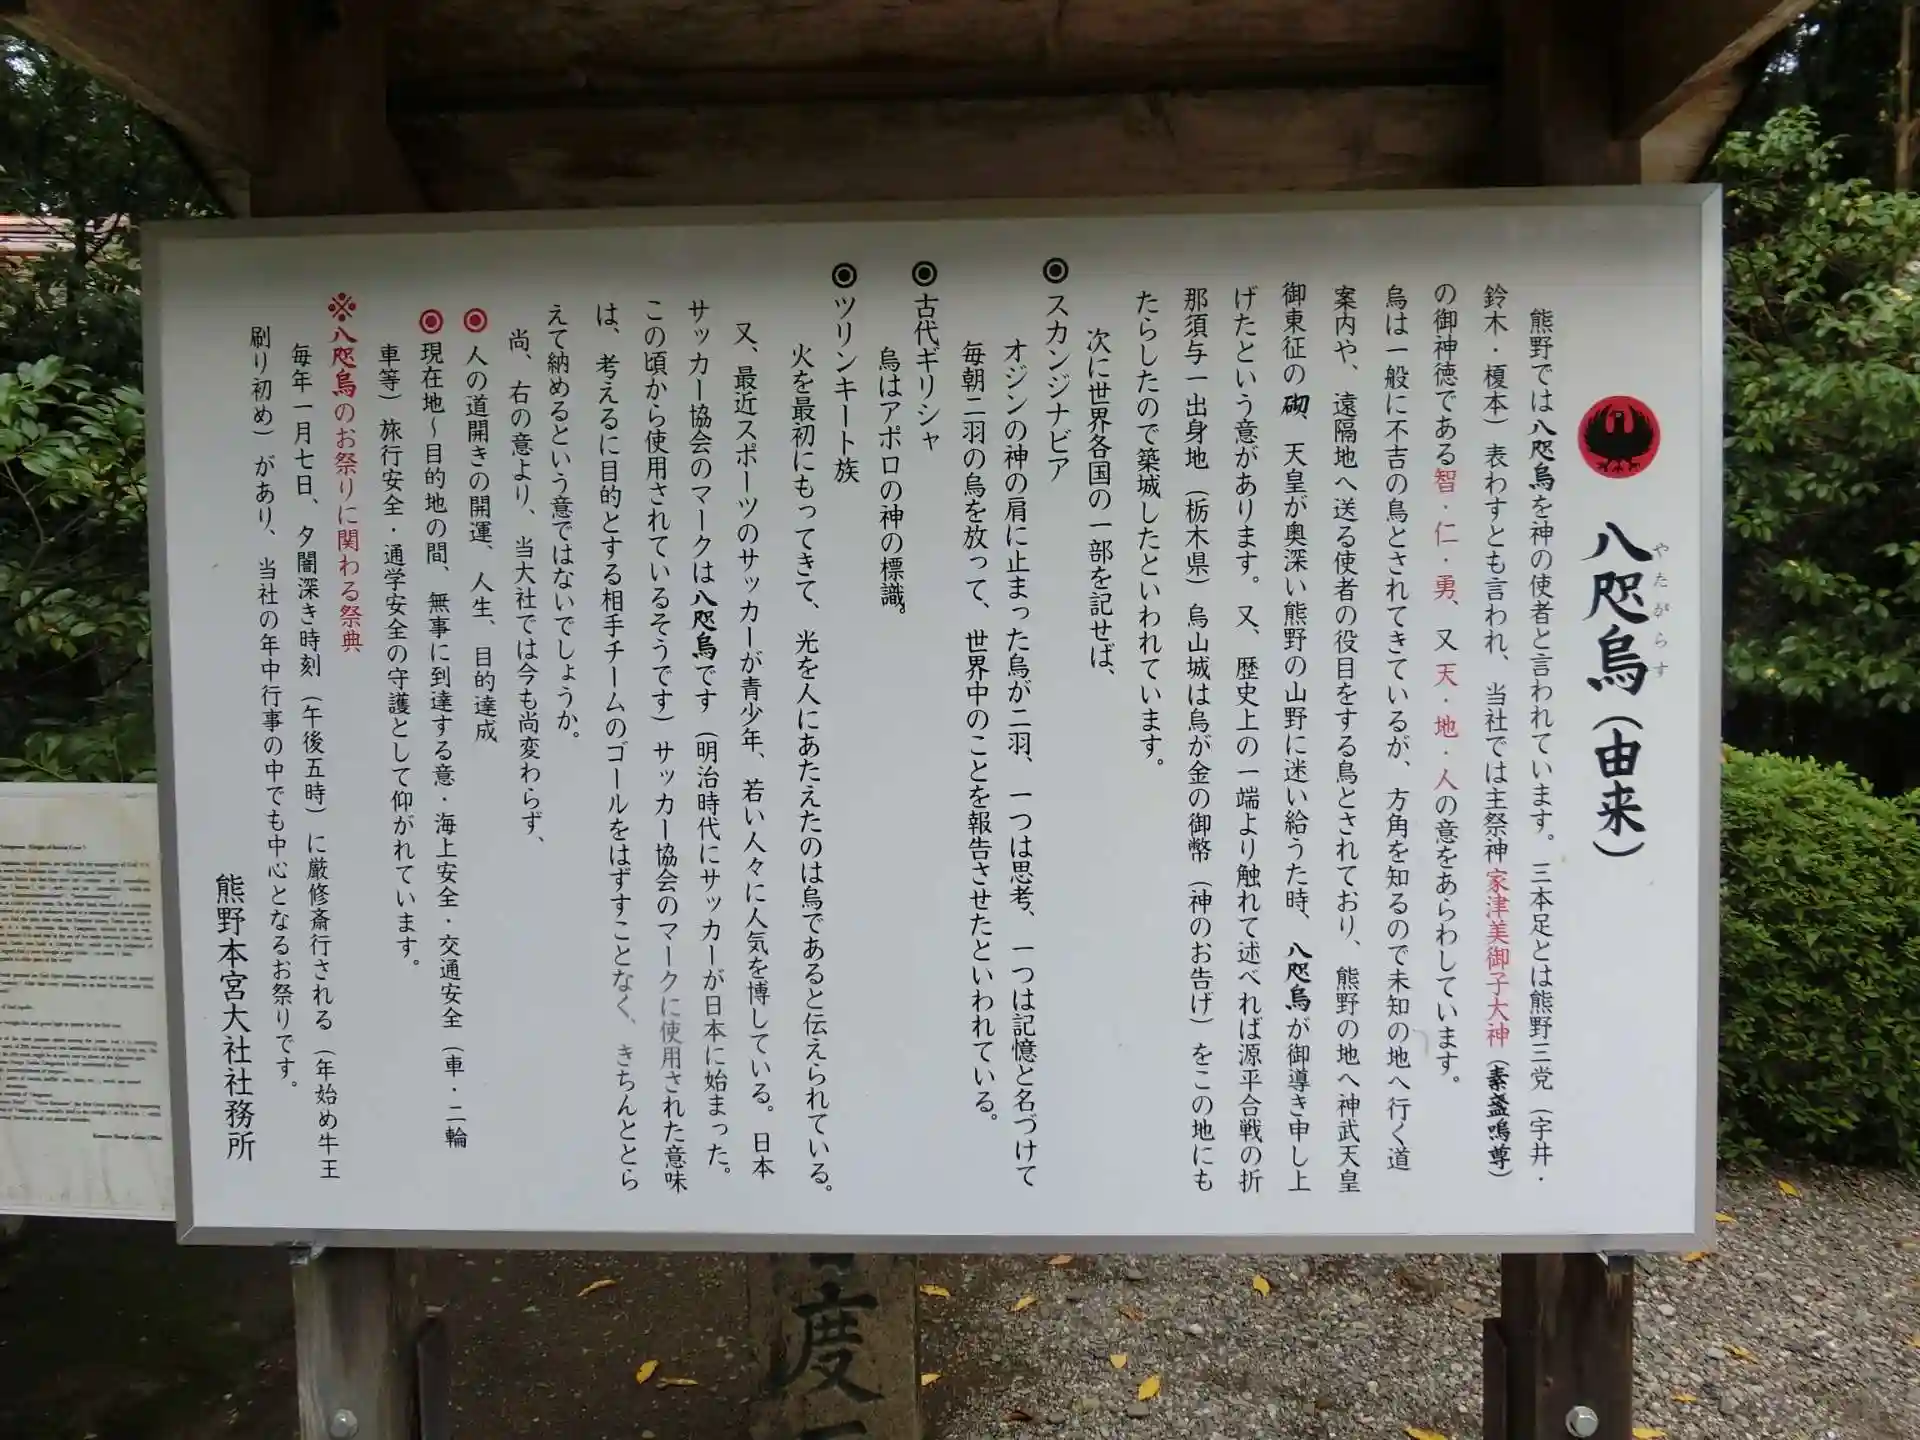 八咫烏(由来)
やたがらす
熊野では八咫烏を神の使者と言われています。三本足とは熊野三党(宇井・
鈴木・榎本)表わすとも言われ、当社では主祭神家津美御子大神(素盞嗚尊)
の御神徳である智・仁・勇、又天・地・人の意をあらわしています。
烏は一般に不吉の鳥とされてきているが、方角を知るので未知の地へ行く道
案内や、遠隔地へ送る使者の役目をする鳥とされており、熊野の地へ神武天皇
御東征の砌、天皇が奥深い熊野の山野に迷い給うた時、八咫烏が御導き申し上
げたという意があります。又、歴史上の一端より触れて述べれば源平合戦の折
那須与一出身地(栃木県)烏山城は烏が金の御幣(神のお告げ)をこの地にも
たらしたので築城したといわれています。
次に世界各国の一部を記せば、
◉スカンジナビア
オジンの神の肩に止まった烏が二羽、一つは思考、一つは記憶と名づけて
毎朝二羽の烏を放って、世界中のことを報告させたといわれている。
◉古代ギリシャ
烏はアポロの神の標識。
◉ツリンキート族
火を最初にもってきて、光を人にあたえたのは烏であると伝えられている。
又、最近スポーツのサッカーが青少年、若い人々に人気を博している。日本
サッカー協会のマークは八咫烏です(明治時代にサッカーが日本に始まった。
この頃から使用されているそうです)サッカー協会のマークに使用された意味
は、考えるに目的とする相手チームのゴールをはずすことなく、きちんととら
えて納めるという意ではないでしょうか。
尚、右の意より、当大社では今も尚変わらず、
◉人の道開きの開運、人生、目的達成
◉現在地～目的地の間、無事に到達する意・海上安全・交通安全(車・二輪
車等)旅行安全・通学安全の守護として仰がれています。
※八咫烏のお祭りに関わる祭典
毎年一月七日、夕闇深き時刻(午後五時)に厳修斎行される(年始め牛王
刷り初め)があり、当社の年中行事の中でも中心となるお祭りです。
熊野本宮大社社務所
度